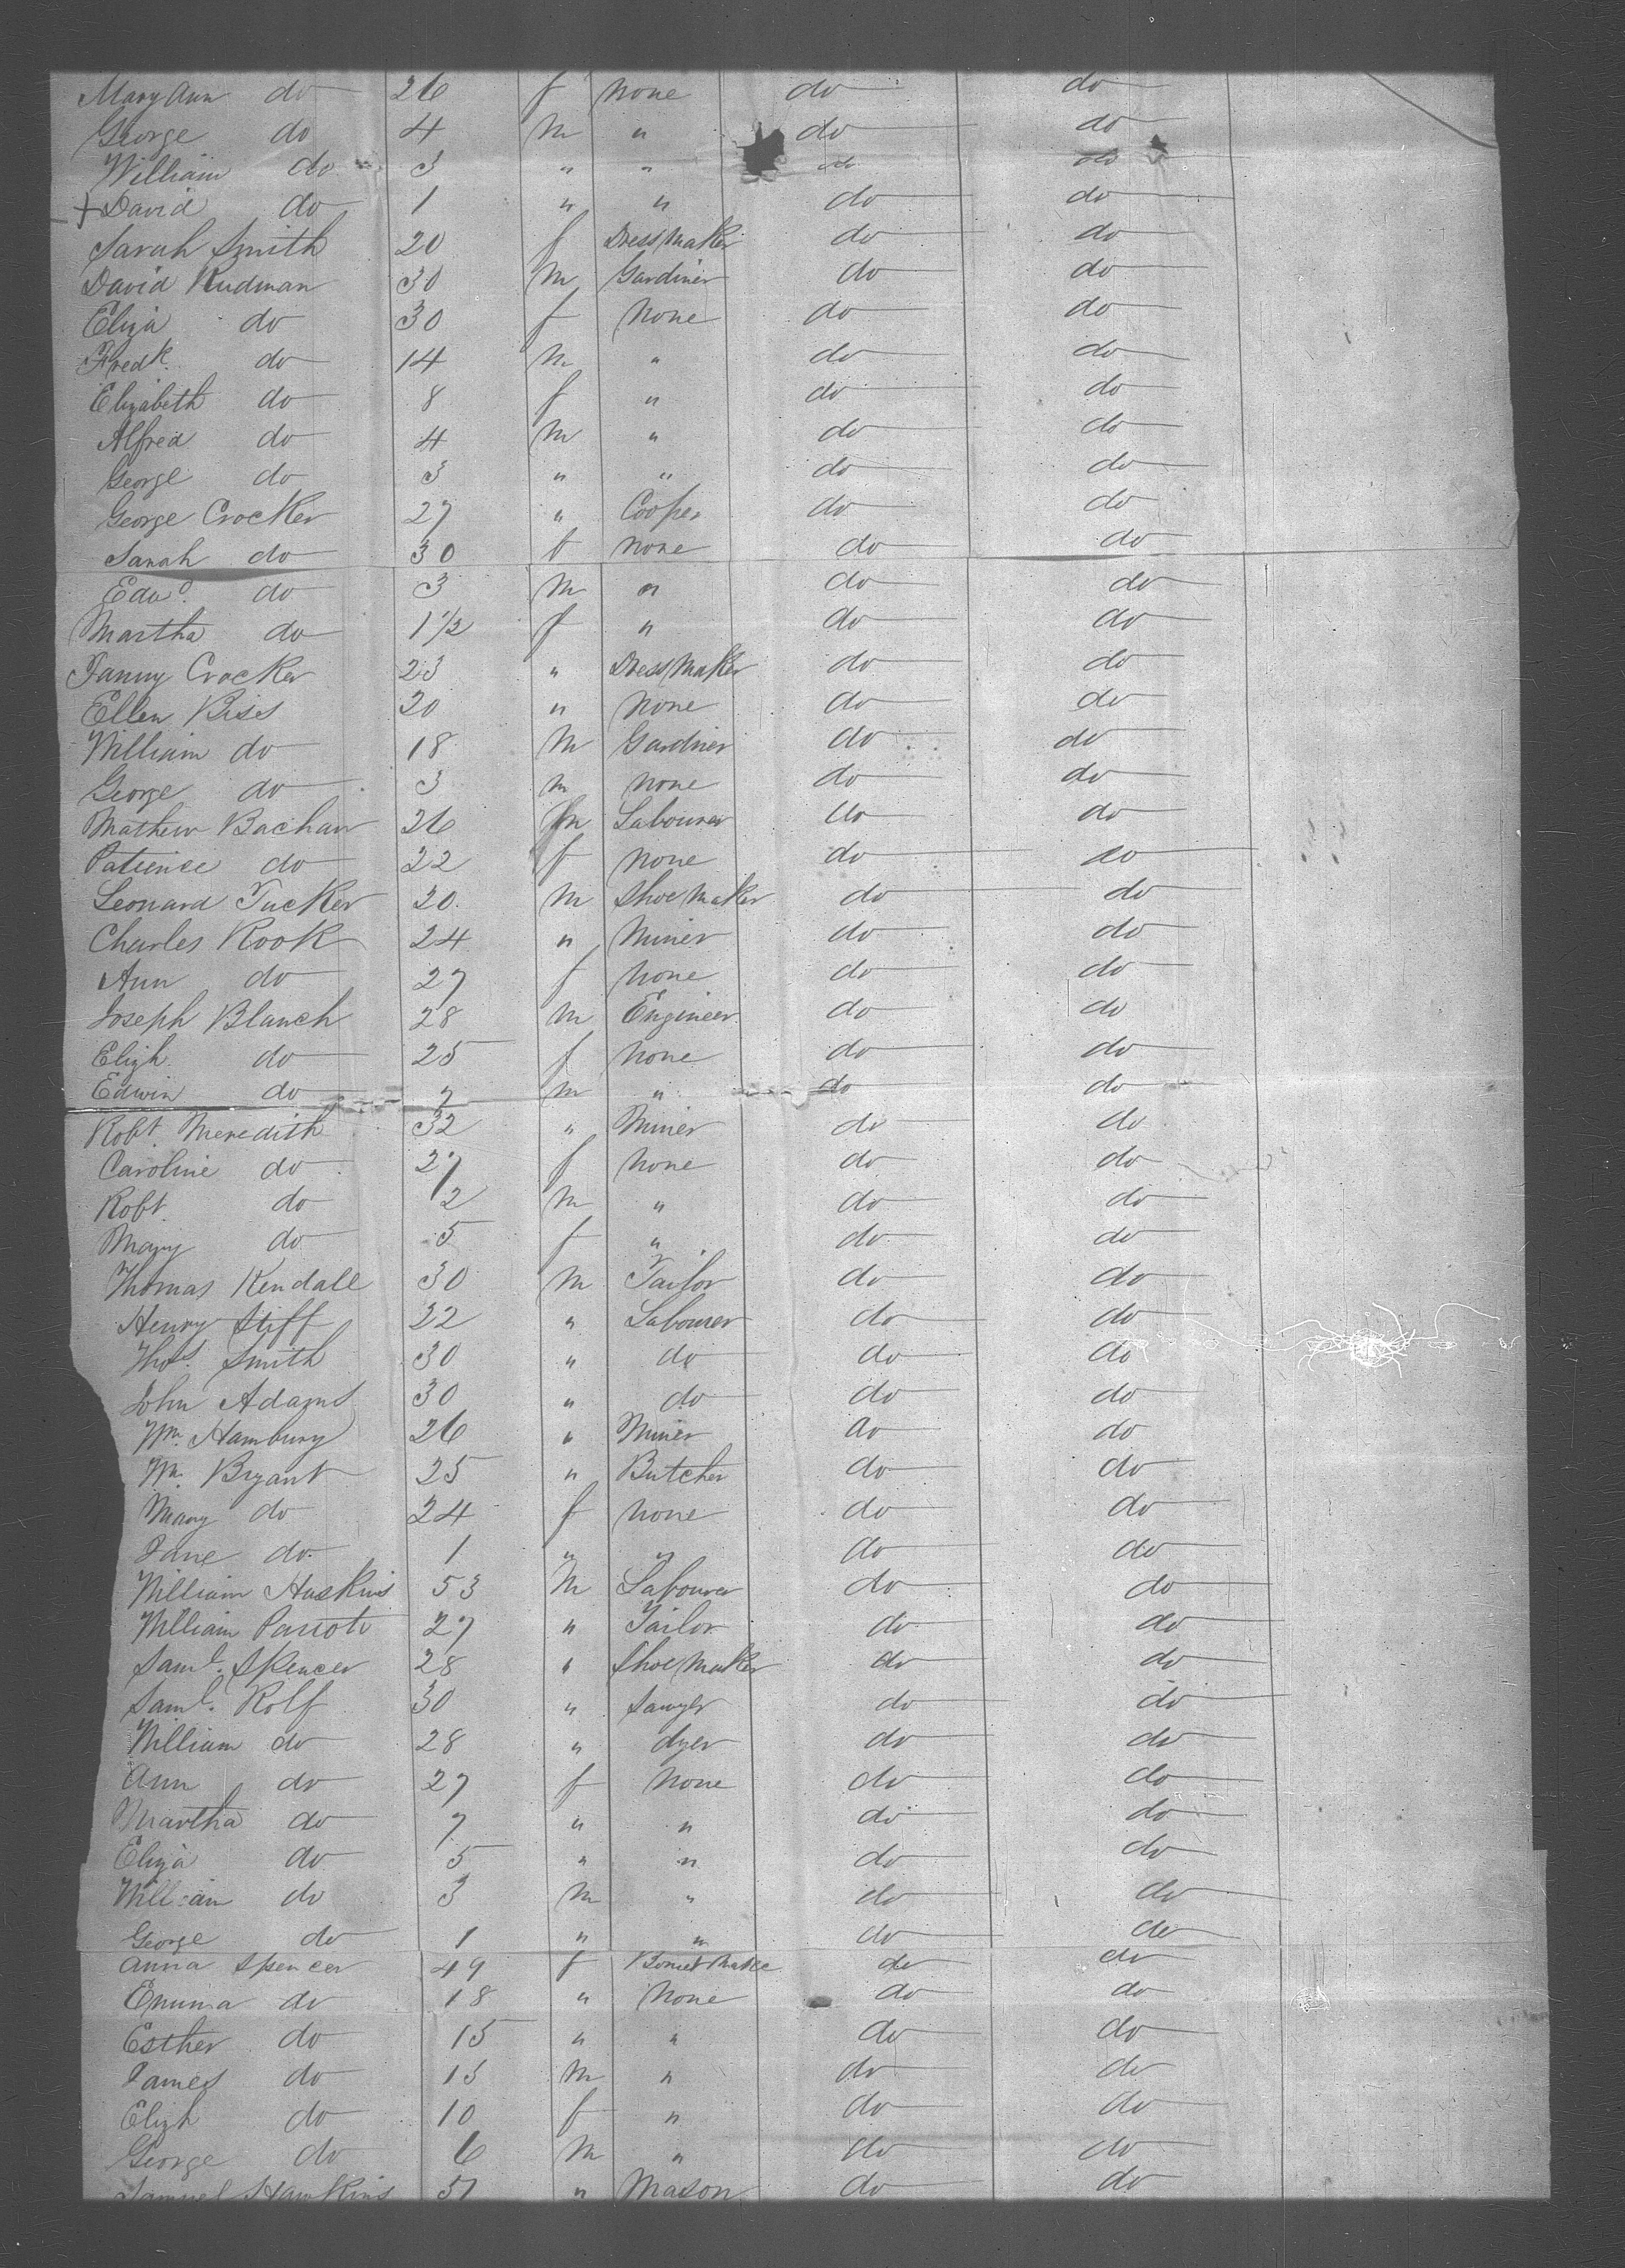 Mary Ann do 26 f none do do
George do 4 m " do do
William do 3 " " do do
+ David do 1 " " do do
Sarah Smith 20 f Dress Maker do do
David Rudman 30 m Gardiner do do
Eliza do 30 f None do do
Fredk. do 14 m " do do
Elizabeth do 8 f " do do
Alfred do 4 m " do do
George do 3 " " do do
George Crocker 27 " Cooper do do
Sarah do 30 f none do do
Edwd. do 3 m " do do
Martha do 1 1/2 f " do do
Fanny Crocker 23 " Dress Maker do do
Ellen 20 " None do do
William do 18 m Gardner do do
George do 3 m none do do
Mathew 26 m Labourer do do
Patience do 22 f none do do
Leonard Tucker 20 m Shoe Maker do do
Charles Rook 24 " Miner do do
Ann do 27 f none do do
Joseph Blanch 28 m Engineer do do
Elizh do 25 f none do do
Edwin do 7 m " do do
Robt. Meredith 32 " Miner do do
Caroline do 27 f none do do
Robt. do m " do do
Mary do 5 f " do do
Thomas Kendall 30 m Tailor do do
Henry Stiff 22 " Labourer do do
Thos. Smith 30 " do do do
John Adams 30 " do do do
Wm. Hambury 26 " Miner do do
Wm. Bryant 25 " Butcher do do
Mary do 24 f none do do
Jane do 1 " " do do
William Huskins 53 m Labourer do do
William 27 " Tailor do do
Saml. Spencer 28 " Shoe Maker do do
Saml. Rolf 30 " Sawyer do do
William do 28 " dyer do do
Ann do 27 f none do do
Martha do 7 " " do do
Eliza do 5 " " do do
William do 3 m " do do
George do 1 " " do do
Anna Spencer 49 f Bonnet Maker do do
Emma do 18 " None do do
Esther do 15 " " do do
James do 13 m " do do
Elizh do 10 f " do do
George do 6 m " do do
Samuel Hawkins 51 " Mason do do